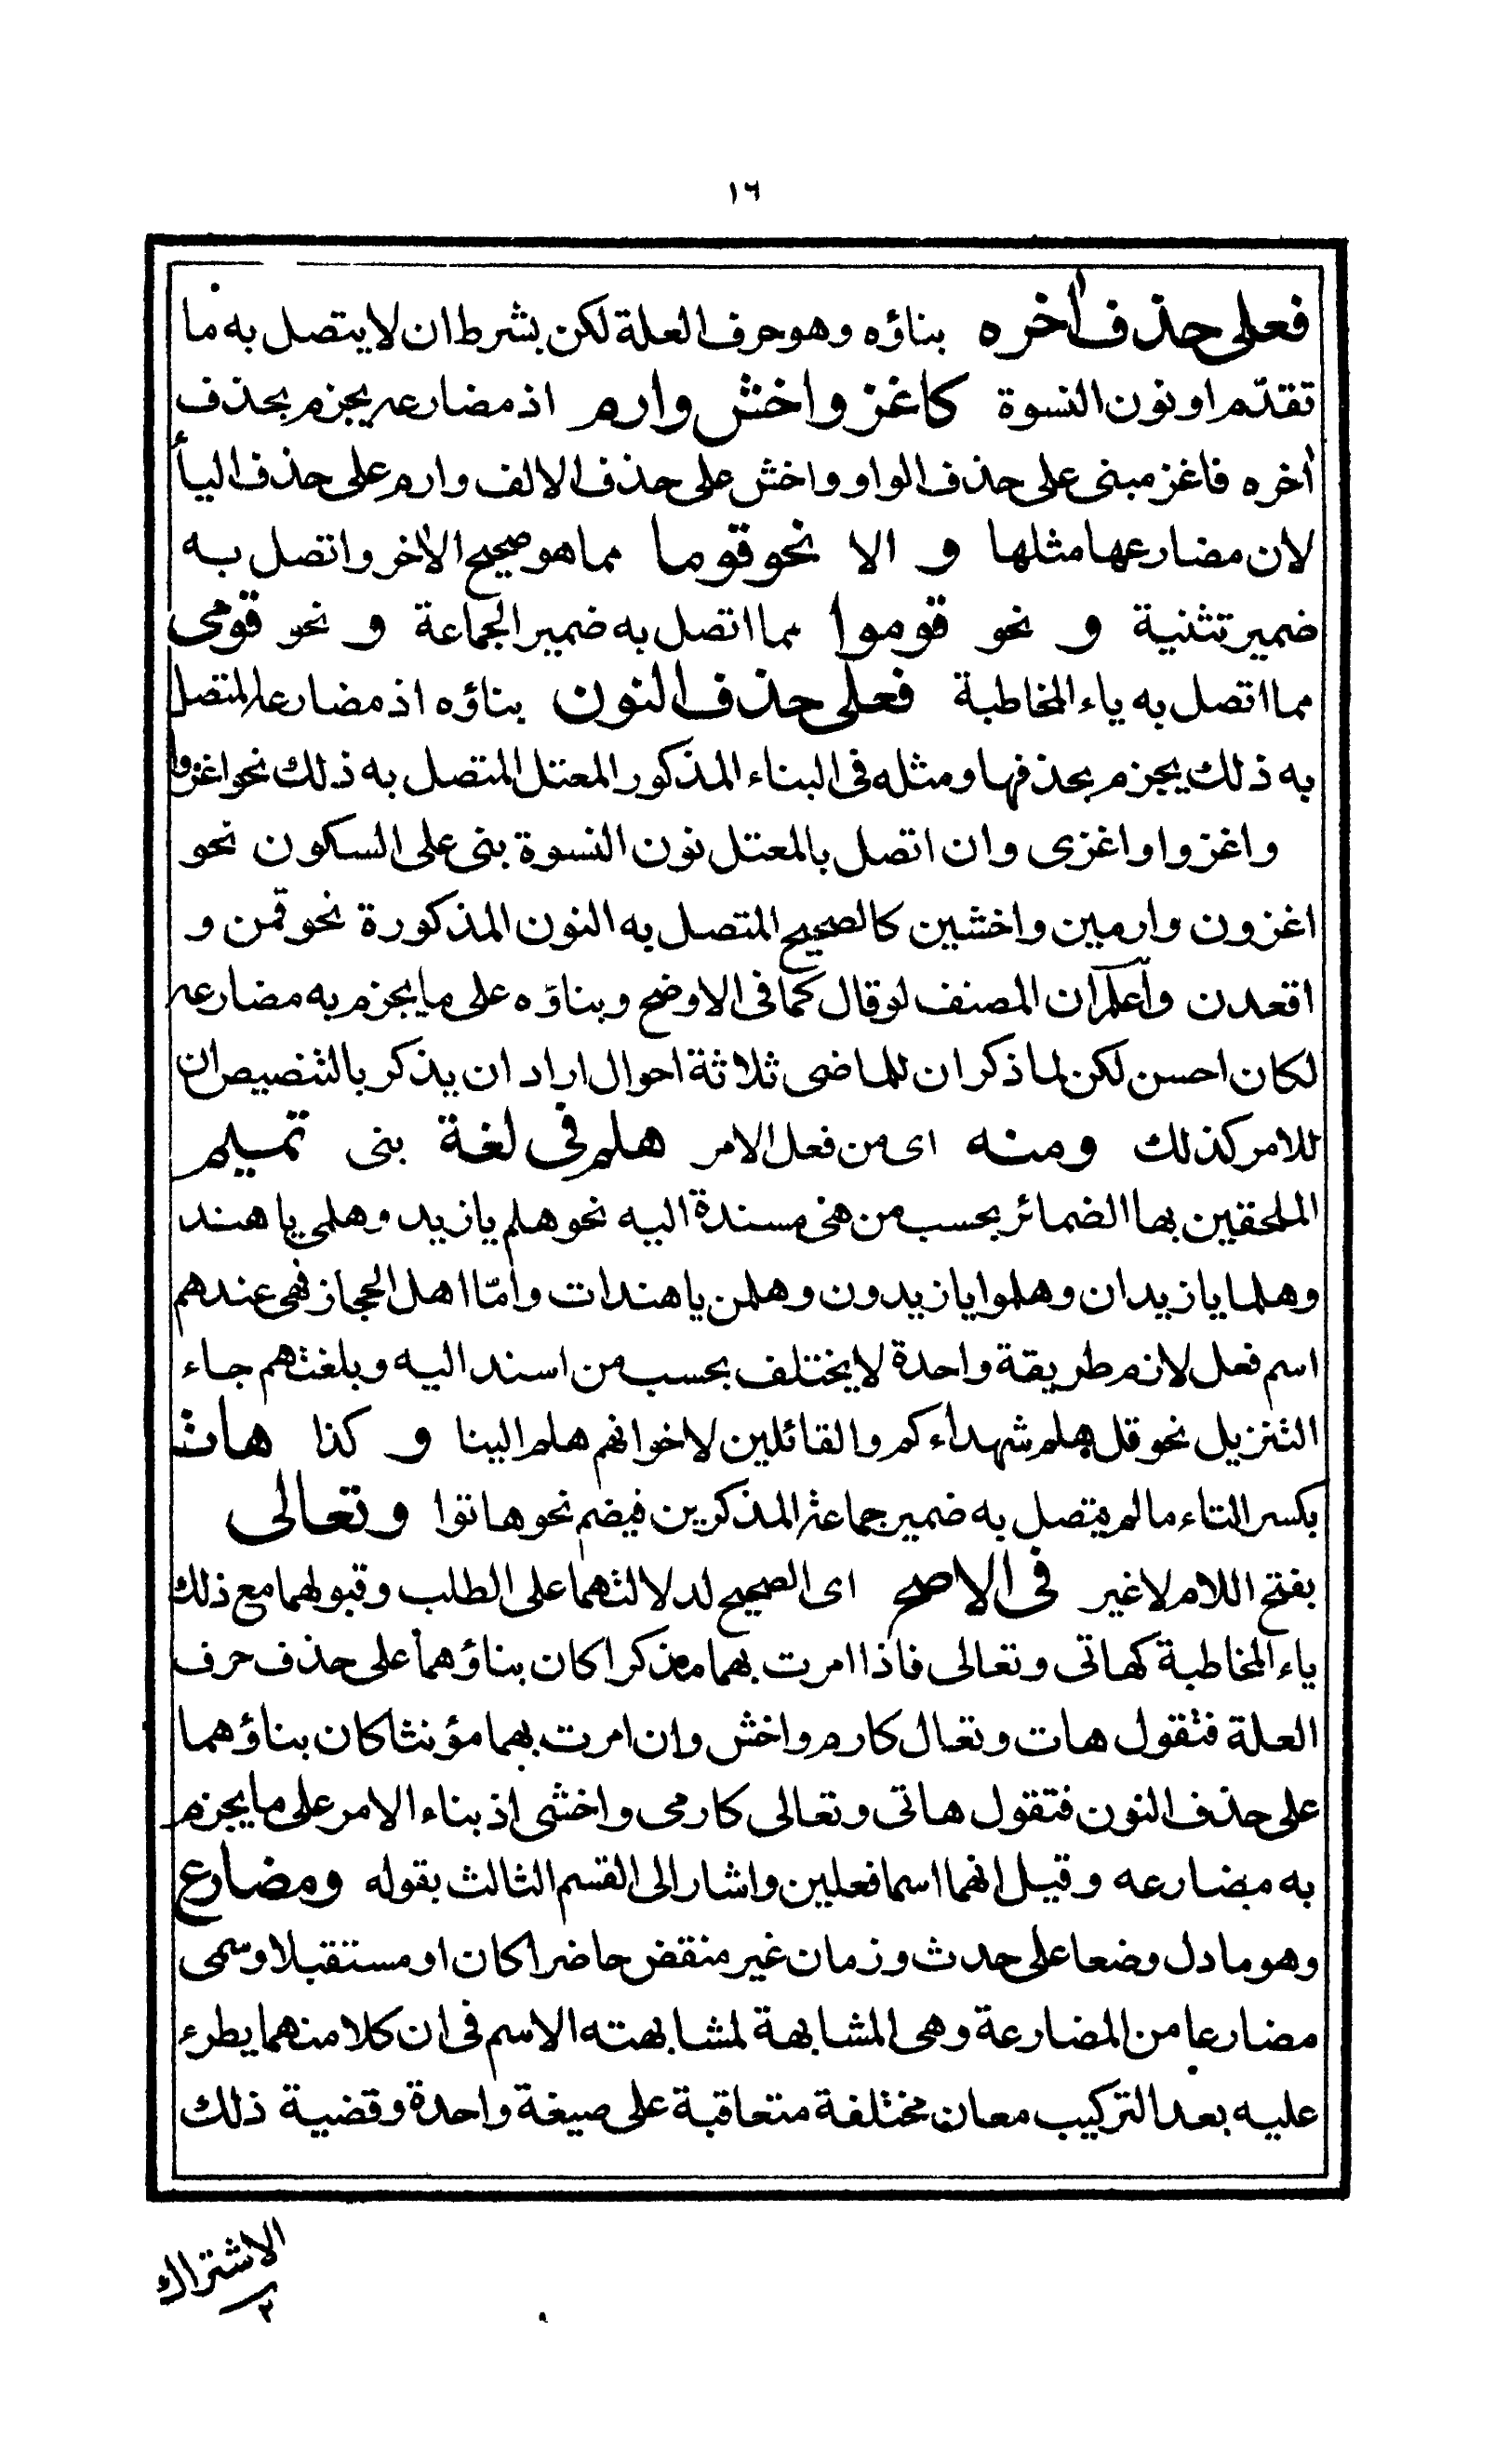 ١٦
فعلى حذف أخره بناؤه وهو حرف العلة لكن بشرط ان لا يتصل به ما
تقدّم او نون النسوة كاغز واخش وارم اذ مضارعه يجزم بحذف
أخره فاغز مبنى على حذف الواو واخش على حذف الالف وارم على حذف اليأ
لان مضارعها مثلها و الا نحو قوما مما هو صحيح الأخر واتصل به
ضمير تثنية و نحو قوموا مما اتصل به ضمير الجماعة و نحو قومى
مما اتصل به ياء المخاطبة فعلى حذف النون بناؤه اذ مضارعه المتصل
به ذلك يجزم بحذفها ومثله فى البناء المذكور المعتل المتصل به ذلك نحو اغزوا
واغزوا واغزى وان اتصل بالمعتل نون النسوة بنى على السكون نحو
اغزون وارمين واخشين كالصحيح المتصل به النون المذكورة نحو قمن و
اقعدن وأعلم ان المصنف لو قال كما فى الاوضح وبناؤه على ما يجزم به مضارعه
لكان احسن لكن لما ذكر ان للماضى ثلاثة احوال اراد ان يذكر بالتنصيص ان
للامر كذلك ومنه اى من فعل الامر هلم فى لغة بنى تميم
الملحقين بها الضمائر بحسب من هى مسندة اليه نحو هلم يازيد وهلمى ياهند
وهلما يازيدان وهلموا يازيدون وهلمن ياهندات وامّا اهل الحجاز فهى عندهم
اسم فعل لازم طريقة واحدة لا يختلف بحسب من اسند اليه وبلغتهم جاء
التنزيل نحو قل هلم شهداءكم والقائلين لاخوانهم هلم الينا و كذا هات
بكسر التاء ما لم يتصل به ضمير جماعة المذكرين فيضم نحو هاتوا وتعالى
بفتح اللام لا غير فى الاصح اى الصحيح لدلالتهما على الطلب وقبولهما مع ذلك
ياء المخاطبة كهاتى وتعالى فاذا امرت بهما مذكرا كان بناؤهما على حذف حرف
العلة فتقول هات وتعال كارم واخش وان امرت بهما مؤنثا كان بناؤهما
على حذف النون فتقول هاتى وتعالى كارمى واخشى اذ بناء الامر على ما يجزم
به مضارعه وقيل انهما اسما فعلين واشار الى القسم الثالث بقوله ومضارع
وهو ما دل وضعا على حدث وزمان غير منقض حاضرا كان او مستقبلا وسمى
مضارعا من المضارعة وهى المشابهة لمشابهته الاسم فى ان كلا منهما يطرء
عليه بعد التركيب معان مختلفة متعاقبة على صيغة واحدة وقضية ذلك
الاشتراك
٢